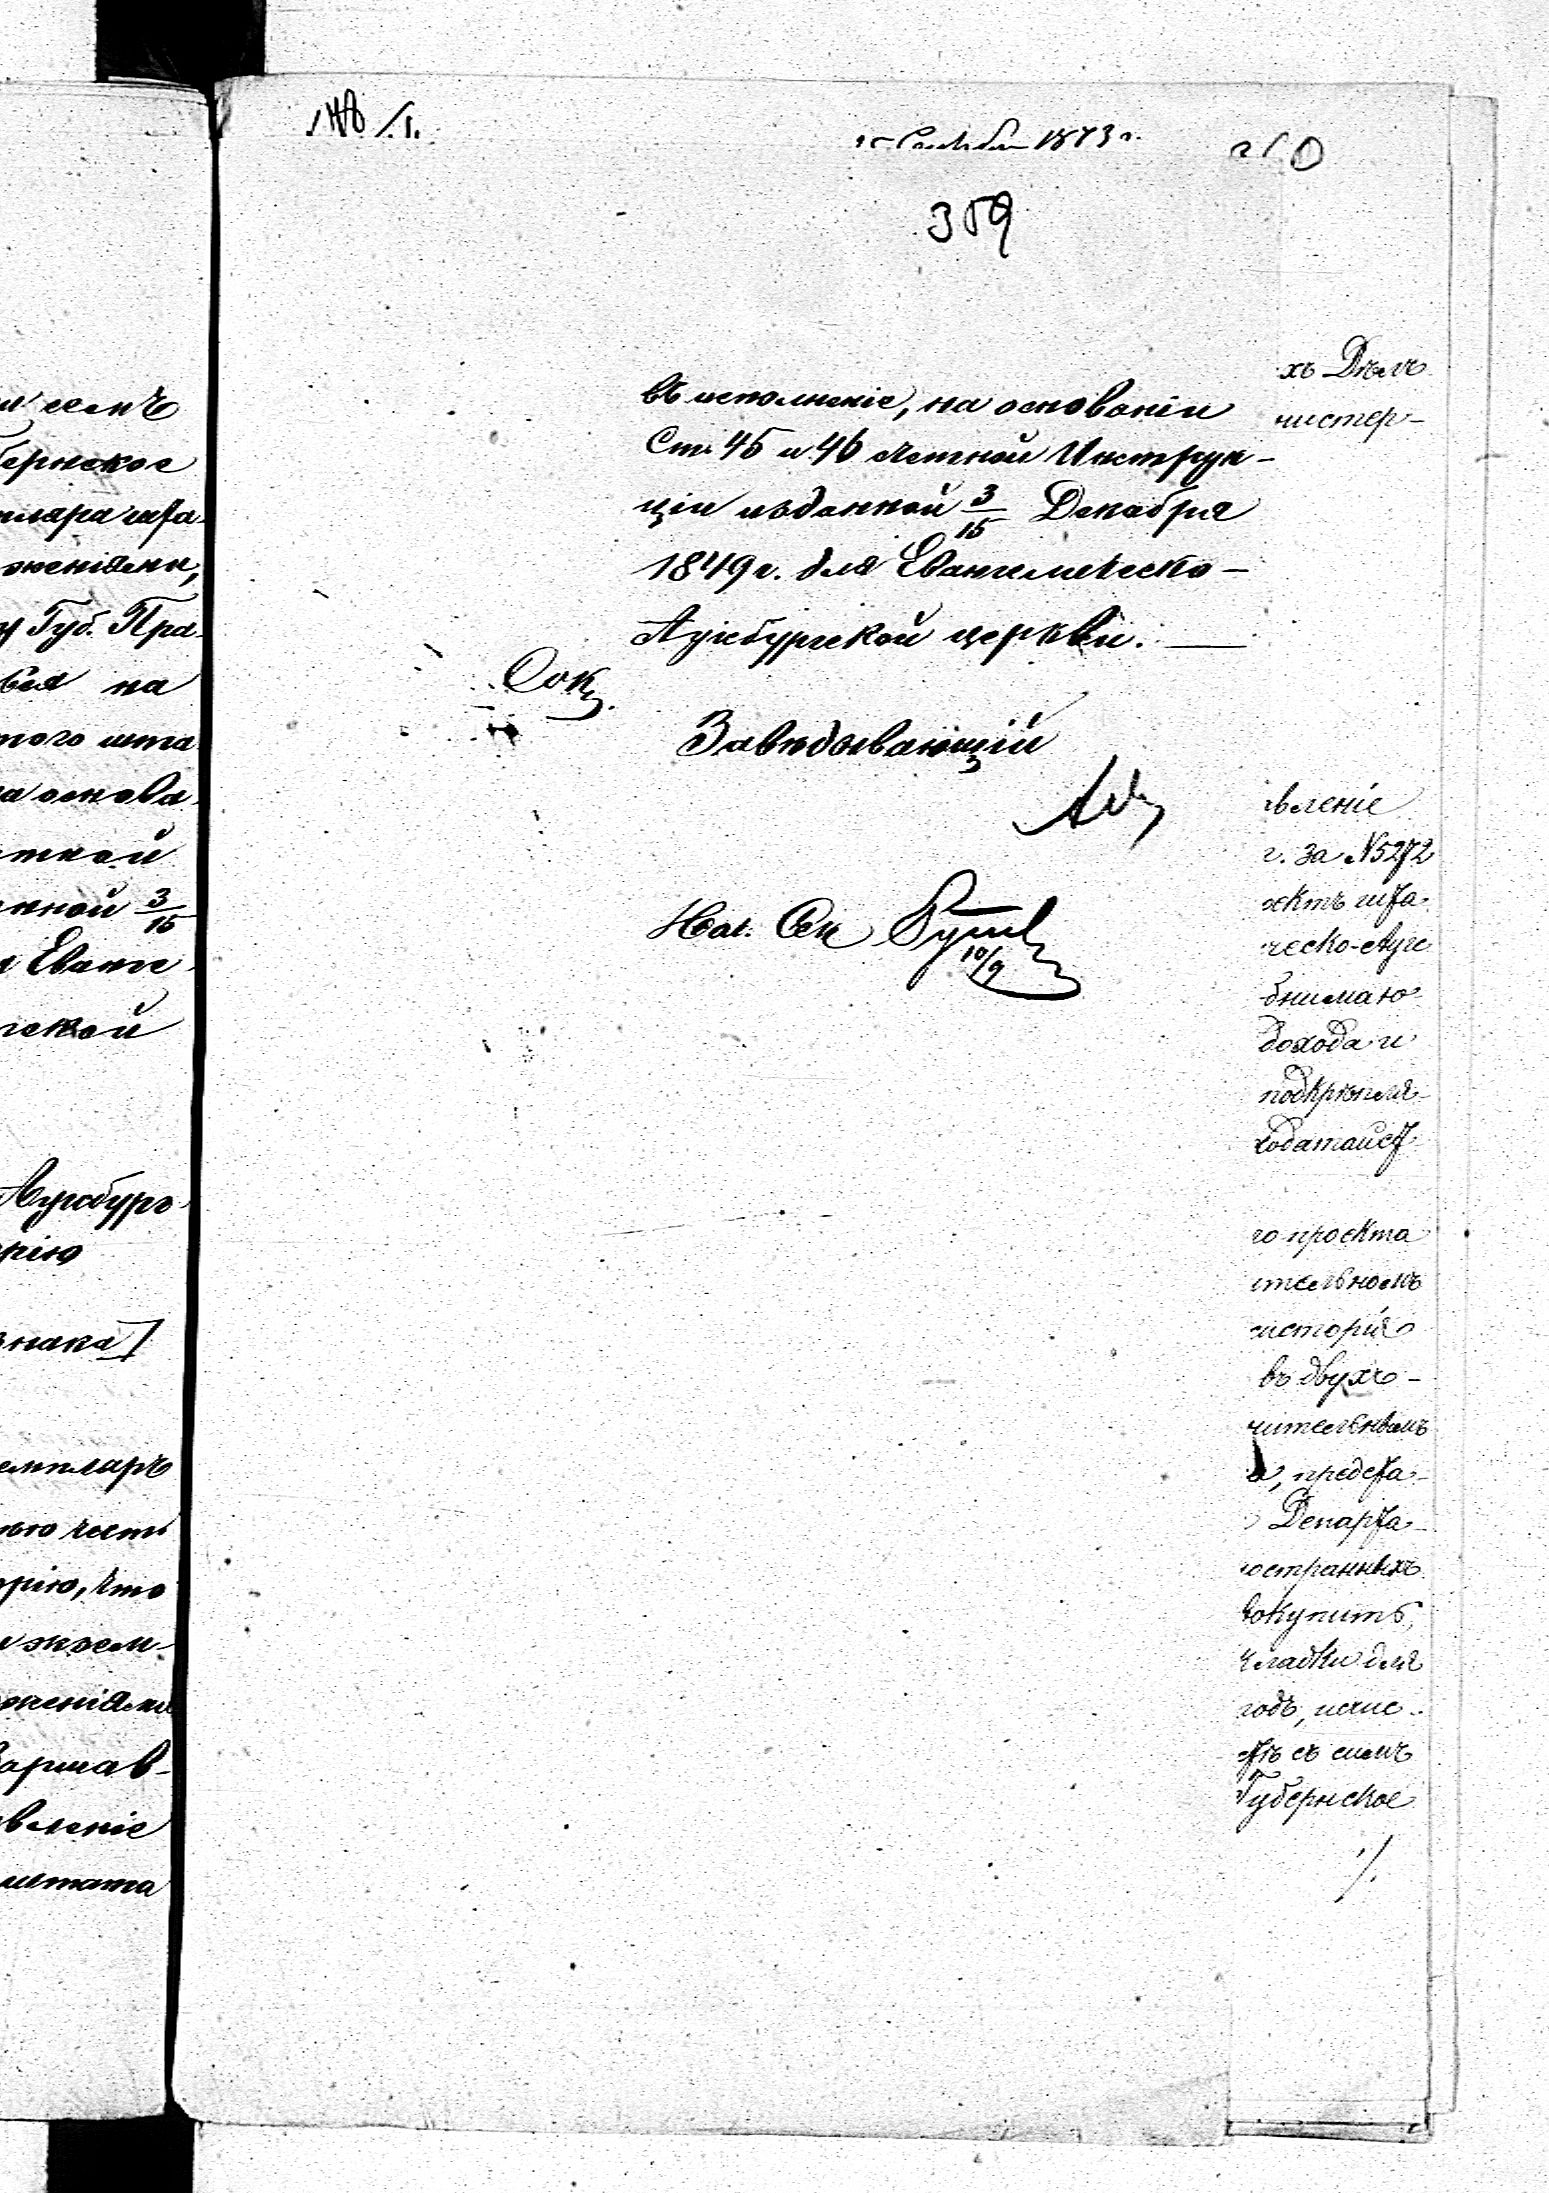 1873 г.
359
въ исполненіе, на основаніи
Ст. 45 и 46 счетной Инструк-
ціи изданной 3/15 Декабря
1849 г. для Евангелическо-
Аугсбургской церкви.
Завѣдывающій
Нач. Отд
10/9
и семъ
бернское
пляра шта-
оженіями,
Губ. Пра-
на
того шта
на основа-
тной
нной 3/15
я Еванге-
гской
Аугсбург-
рію
знака]
емпляръ
ею честь
орію, что
экзем-
оженіями
Варшав-
вленіе
штата
хъ Дѣлъ
нистер-
вленіе
г. за №5272
ектъ шта-
ческо-Аугс
внимаю
дохода и
подкрѣпля-
ходатайст
го проекта
ительномъ
систорія
въ двухъ-
чительнымъ
предста-
Департа-
остранныхъ
вокупить,
складки для
годъ, исчис-
съ симъ
Губернское
./.